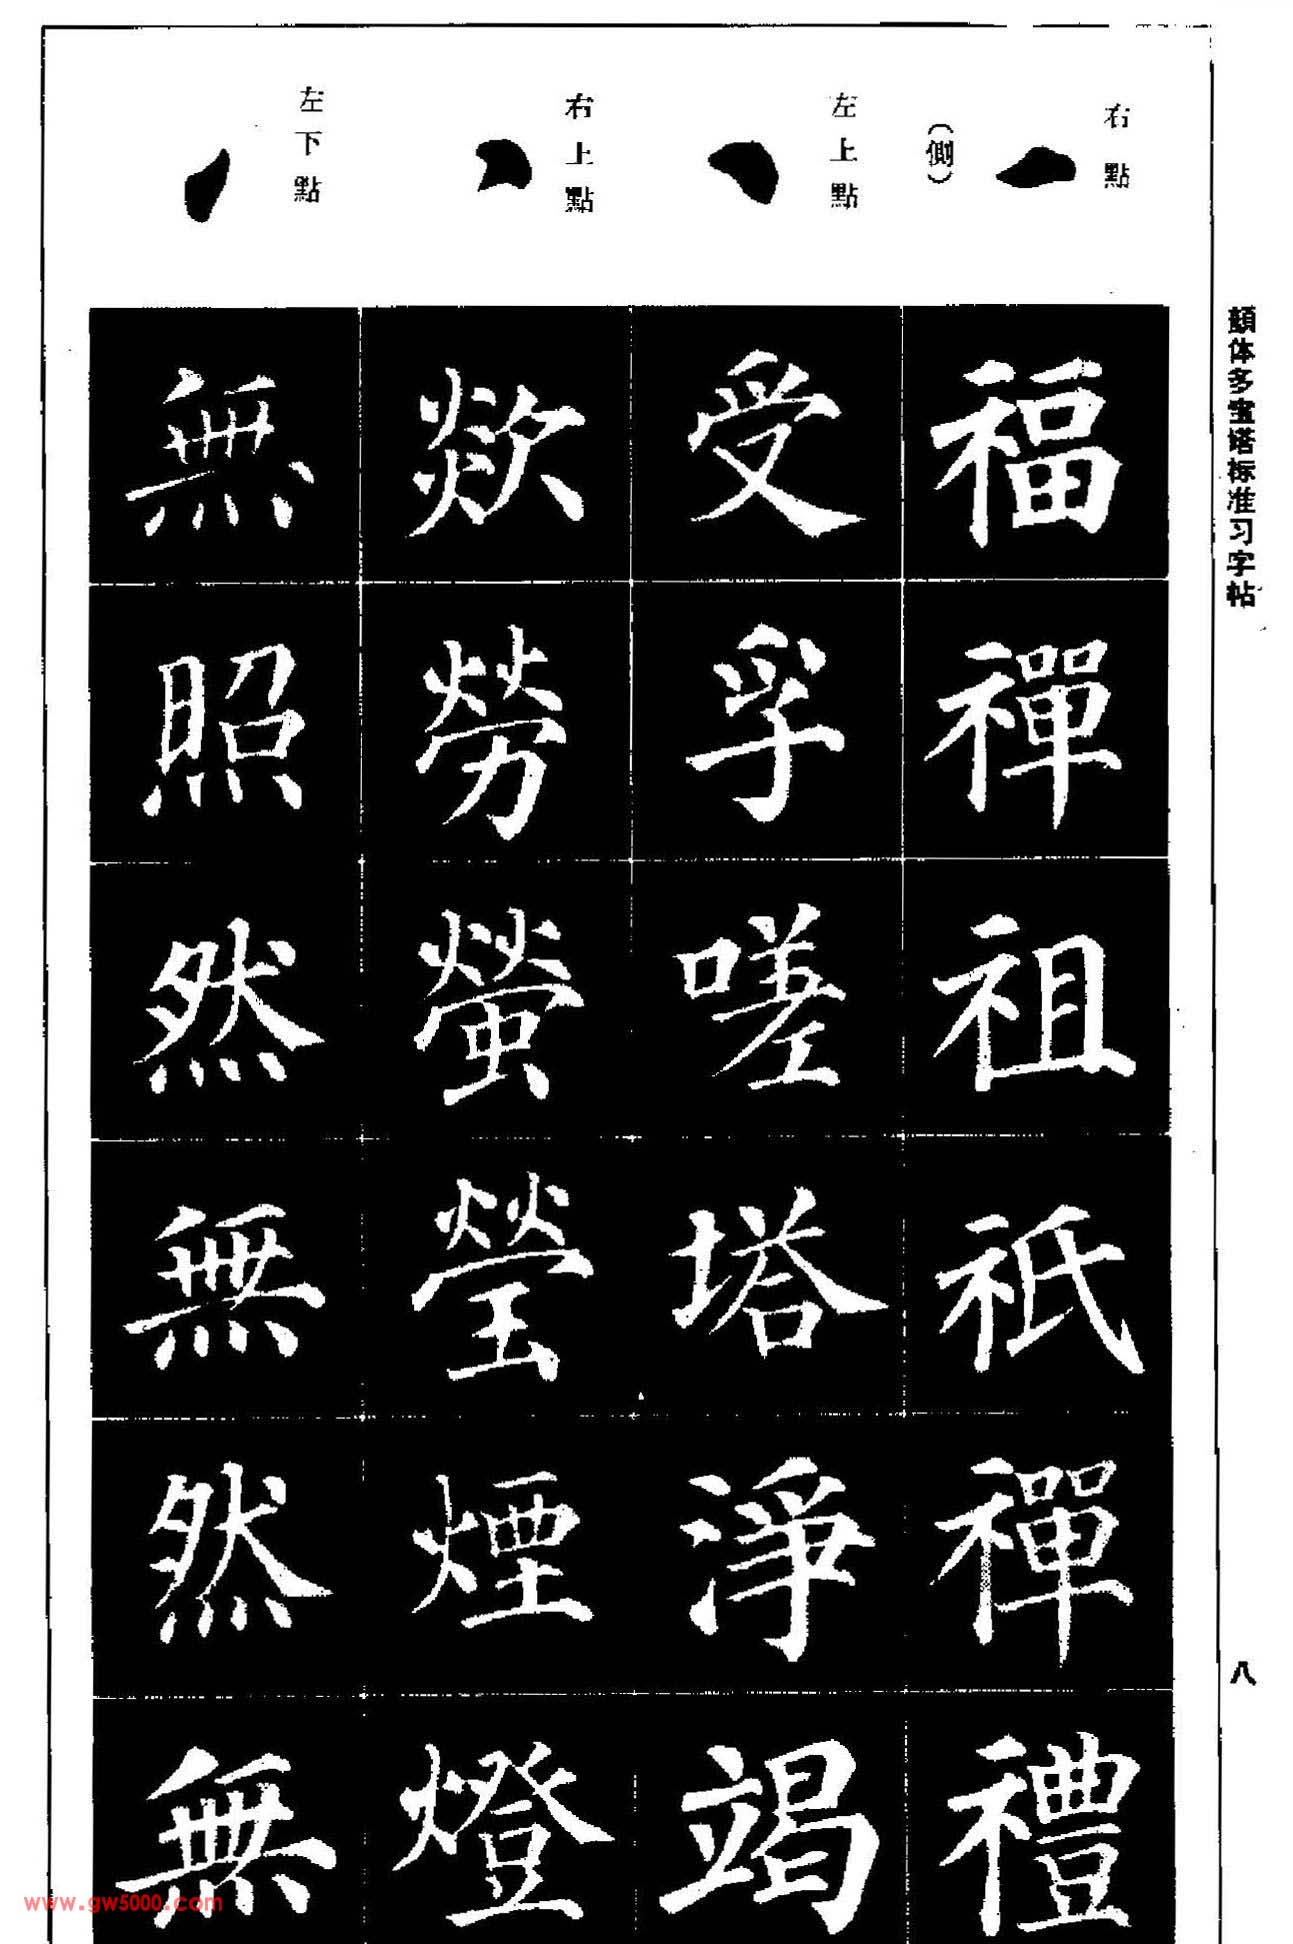 顏体多宝塔标准习字帖
八
右點
(側)
左上點
右上點
左下點
福禪祖祇禪禮
受孚嗟塔淨竭
欻勞螢瑩煙燈
無照然無然無
www.gw5000.com